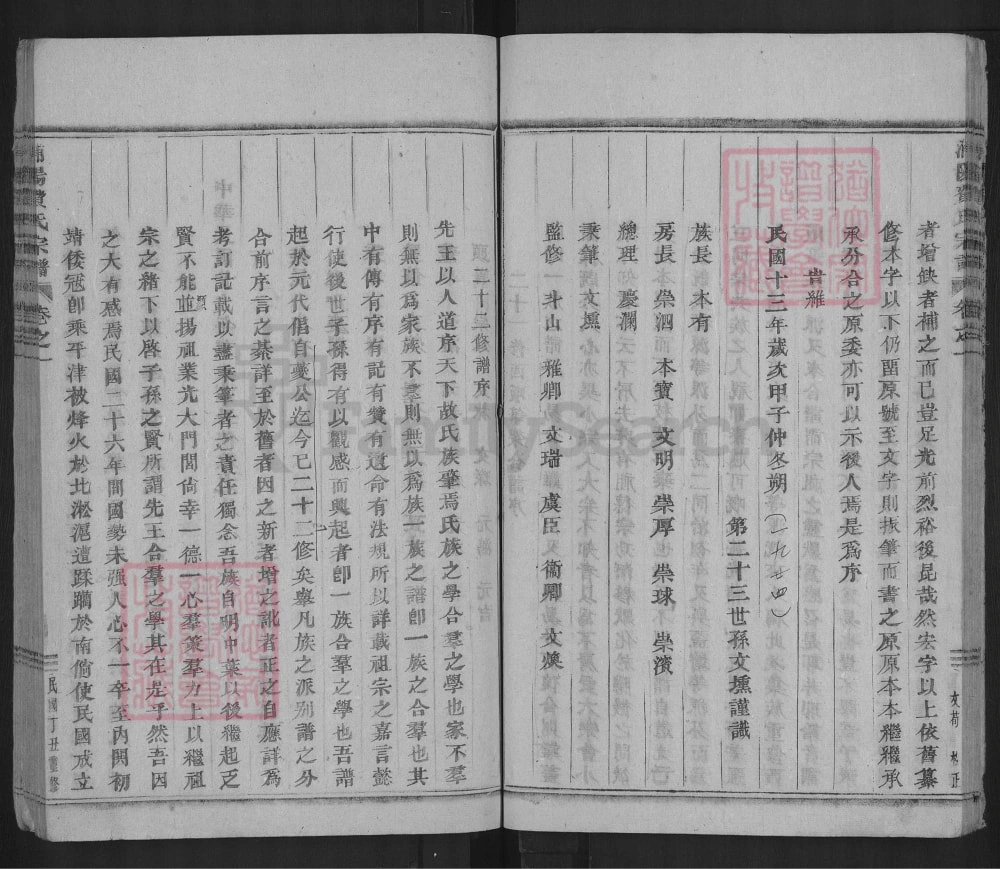 者增缺者補之而已豈足光前烈裕後昆哉然宏字以上依舊纂
修本字以下仍留原號至文字則拔筆而書之原原本本繼繼承
承分合之原委亦可以示後人焉是爲序
旹維
民國十三年歲次甲子仲冬朔(一九二四)
第二十三世孫文壎謹識
族長 本有
房長 崇泗 本寶 文明 崇厚 崇球 崇濱
總理 慶瀾
秉筆 文壎
監修 斗山 雅卿 文瑞 虞臣 衞卿 文煥
二十三修譜序
先王以人道序天下故氏族肇焉氏族之學合羣之學也家不羣
則無以爲家族不羣則無以爲族一族之譜卽一族之合羣也其
中有傳有序有記有贊有遺命有法規所以詳載祖宗之嘉言懿
行使後世子孫得有以觀感而興起者卽一族合羣之學也吾譜
起於元代倡自夔公迄今已二十二修矣舉凡族之派列譜之分
合前序言之綦詳至於舊者因之新者增之訛者正之自應詳爲
考訂記載以盡秉筆者之責任獨念吾族自明中葉以後繼起乏
賢不能並揚祖業光大門閭倘幸一德一心羣策羣力上以繼祖
宗之緒下以啓子孫之賢所謂先王合羣之學其在是乎然吾因
之大有感焉民國二十六年間國勢未强人心不一卒至內閧初
靖倭冦卽乘平津被烽火於北淞滬遭蹂躪於南倘使民國成立
宗譜 卷之一
民國丁丑重修
校正
FamilySearch